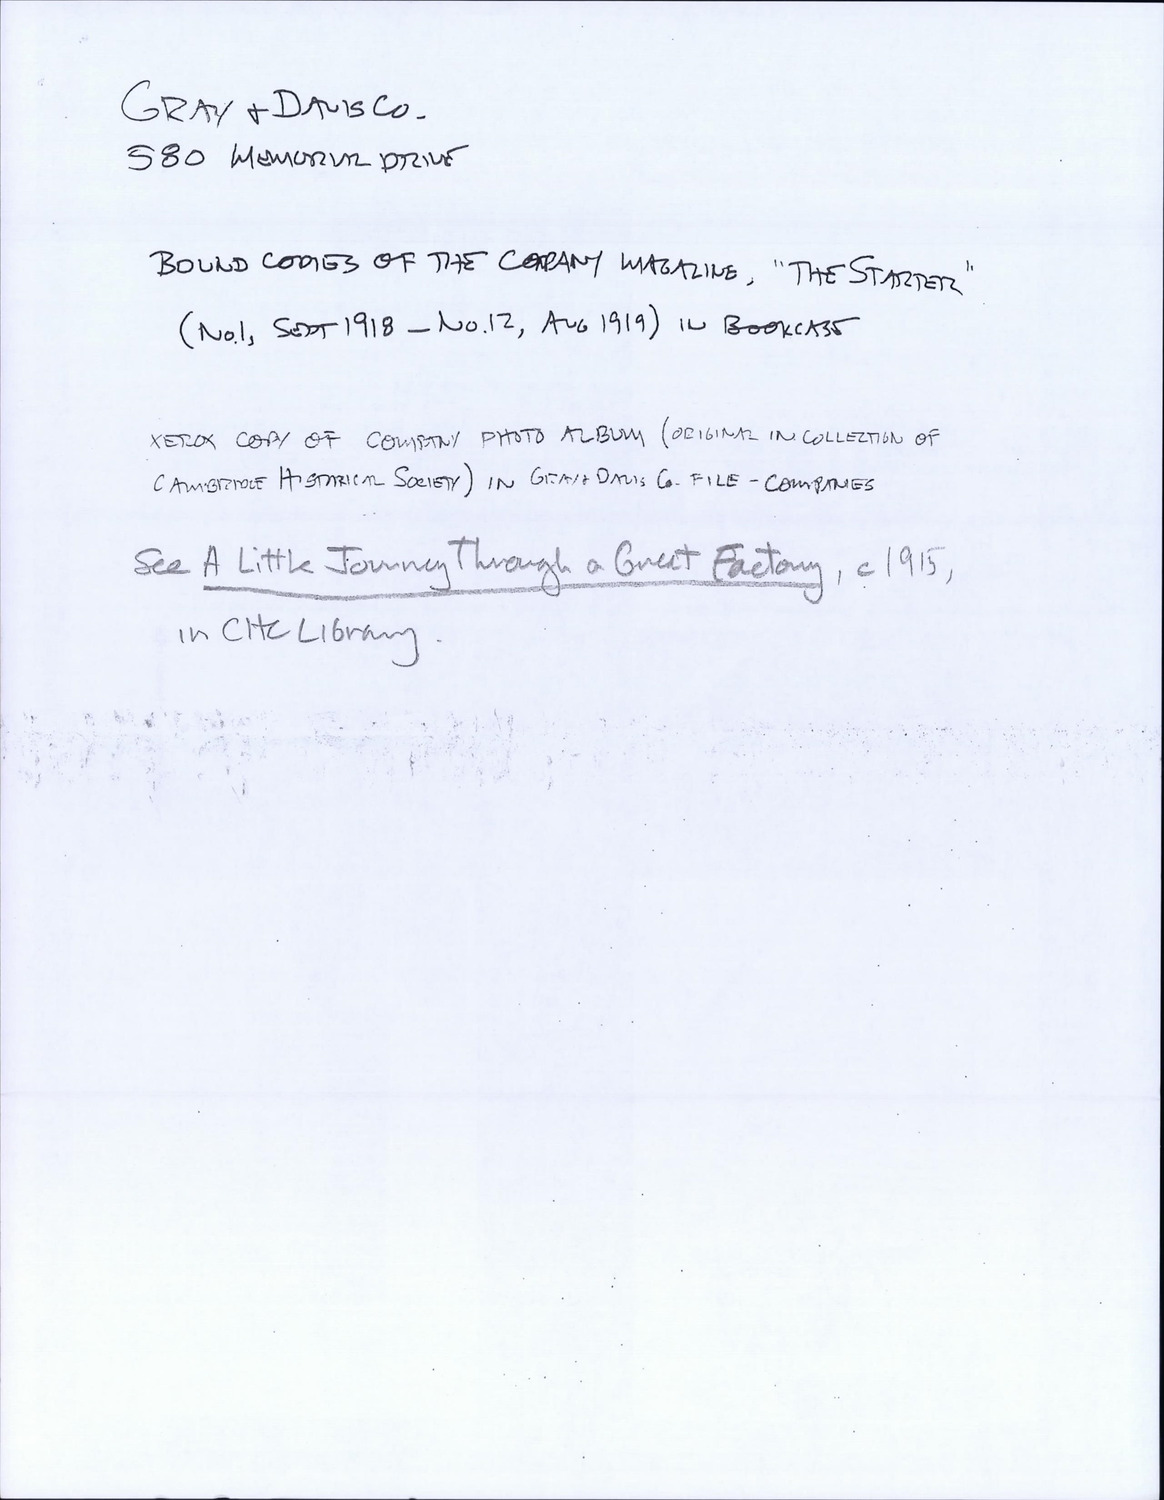 GRAY + DAVIS CO.
580 MEMORIAL DRIVE
BOUND COPIES OF THE COMPANY MAGAZINE, "THE STARTER"
(No.1, SEPT 1918 – No.12, AUG 1919) IN BOOKCASE
XEROX COPY OF COMPANY PHOTO ALBUM (ORIGINAL IN COLLECTION OF
CAMBRIDGE HISTORICAL SOCIETY) IN GRAY + DAVIS Co. FILE – COMPANIES
See A Little Journey Through a Great Factory, c 1915,
in CHC Library.